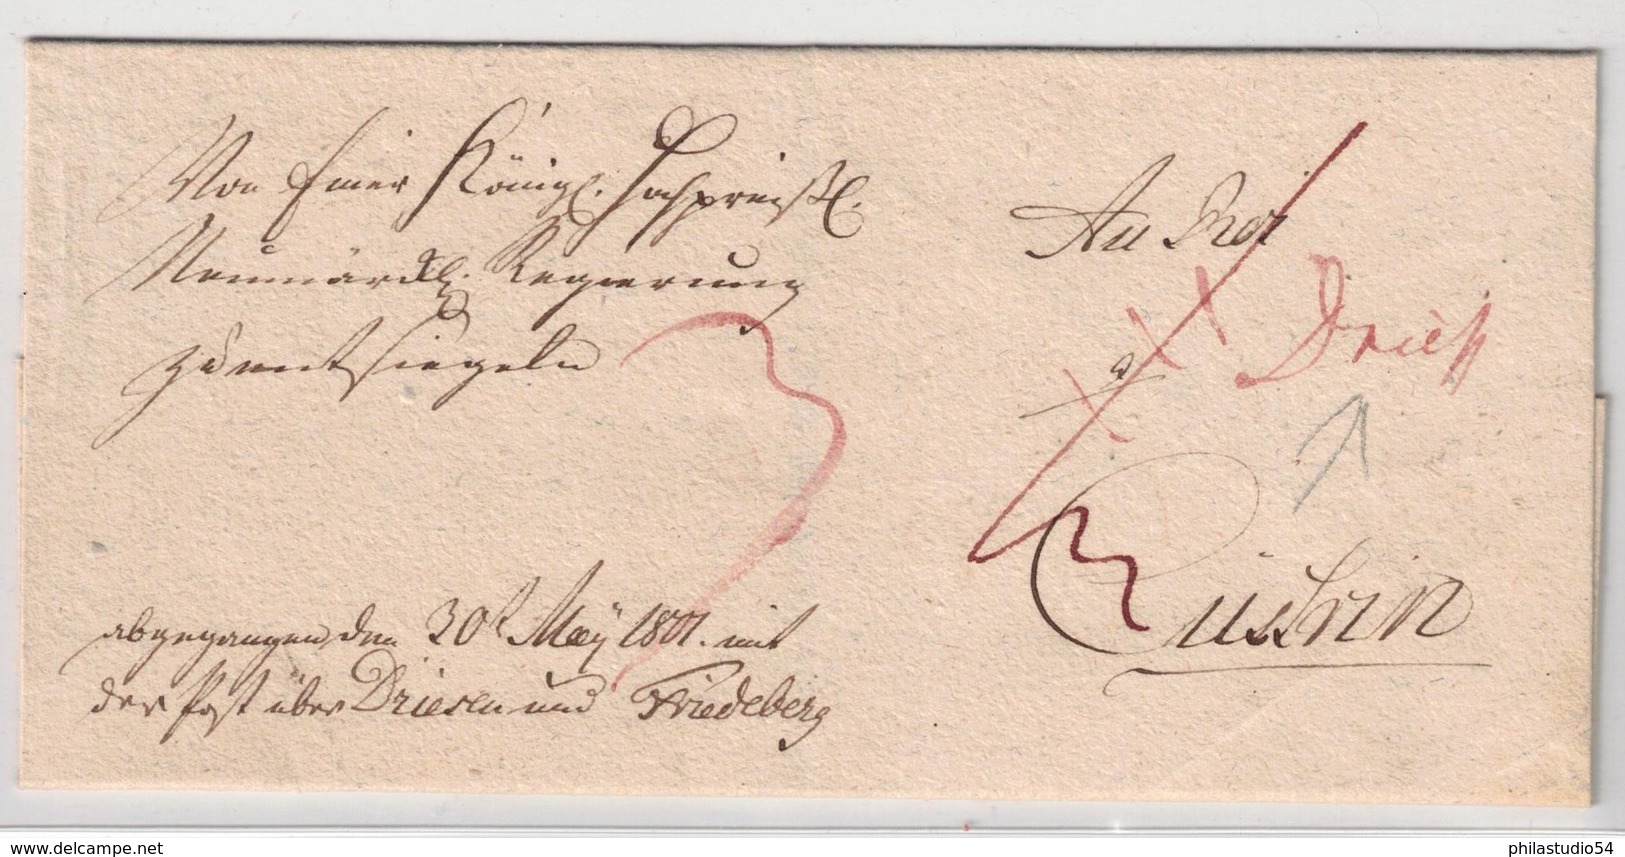 Von Einer Königl. Hochpreißl.
Neumärckl. Regierung
zu entsiegeln
An
a
Cüstrin
3
Dries
abgegangen den 30t May 1801. mit
der Post über Driesen und Friedeberg
www.delcampe.net
philastudio54